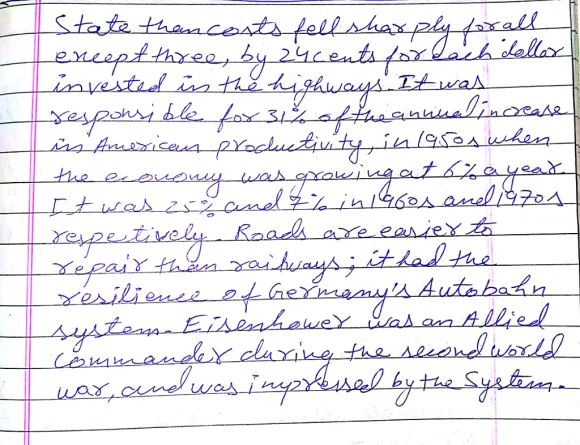 State than costs fell sharply for all
except three, by 24 cents for each dollar
invested in the highways. It was
responsible for 31% of the annual increase
in American productivity, in 1950s when
the economy was growing at 6% a year.
It was 25% and 7% in 1960s and 1970s
respectively. Roads are easier to
repair than railways; it had the
resilience of Germany's Autobahn
system. Eisenhower was an Allied
Commander during the second world
war, and was impressed by the System.